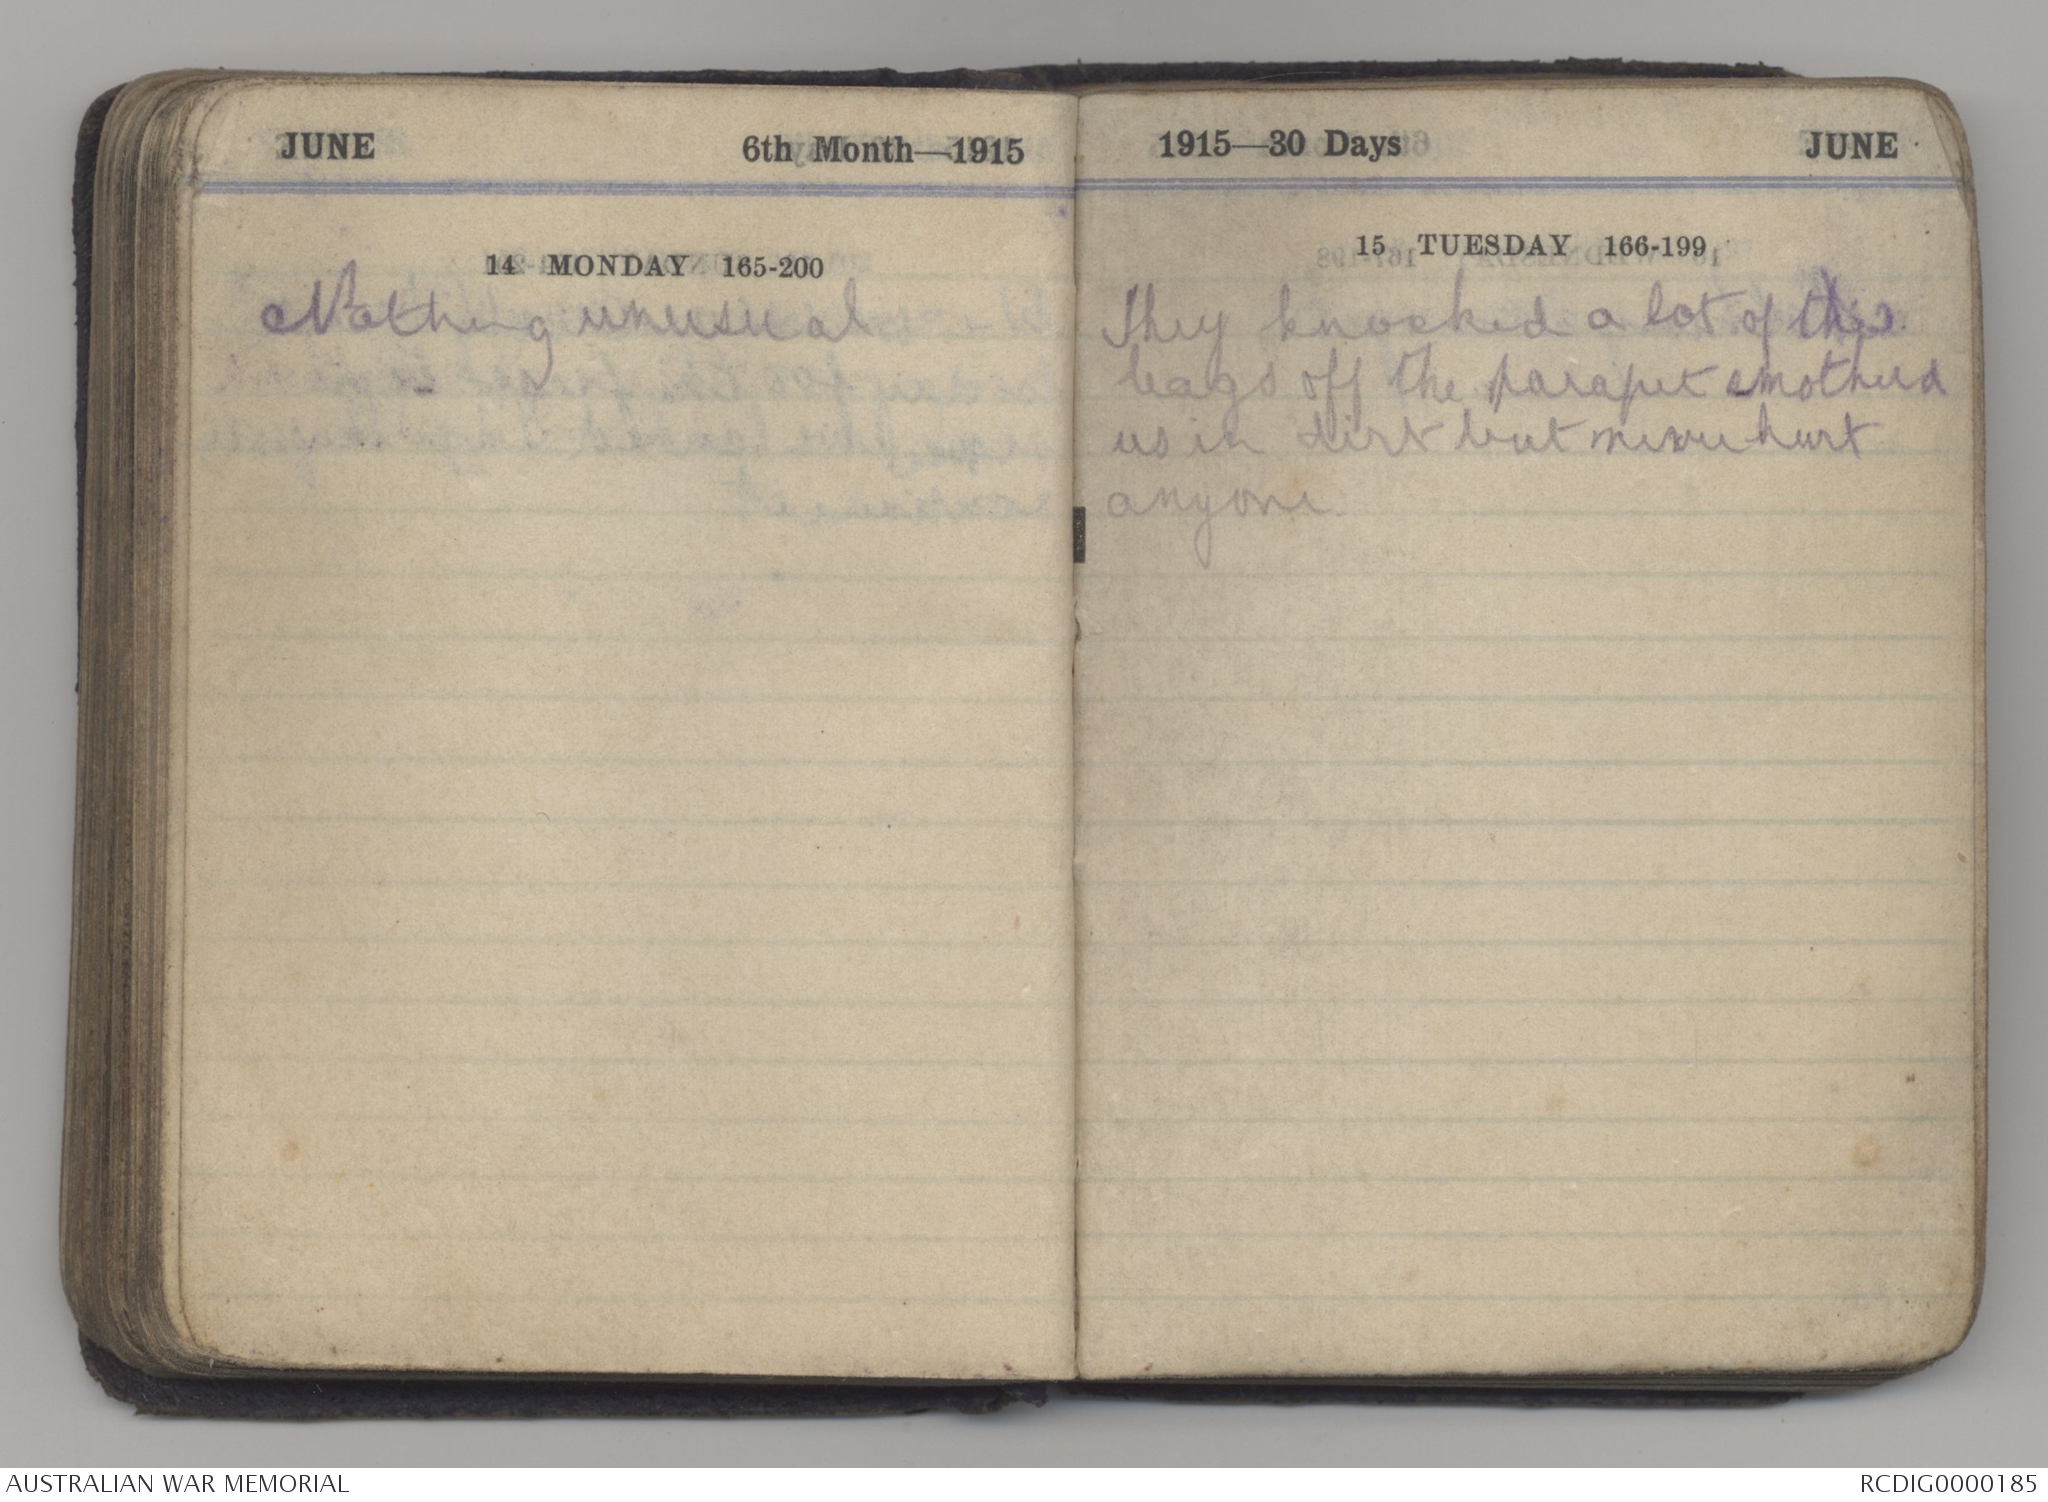 JUNE 6th Month—1915
14 MONDAY 165-200
Nothing unusual
1915—30 Days JUNE
15 TUESDAY 166-199
They knocked a lot of the
bags off the parapet smotherd
us in dirt but never hurt
anyone.
AUSTRALIAN WAR MEMORIAL
RCDIG0000185